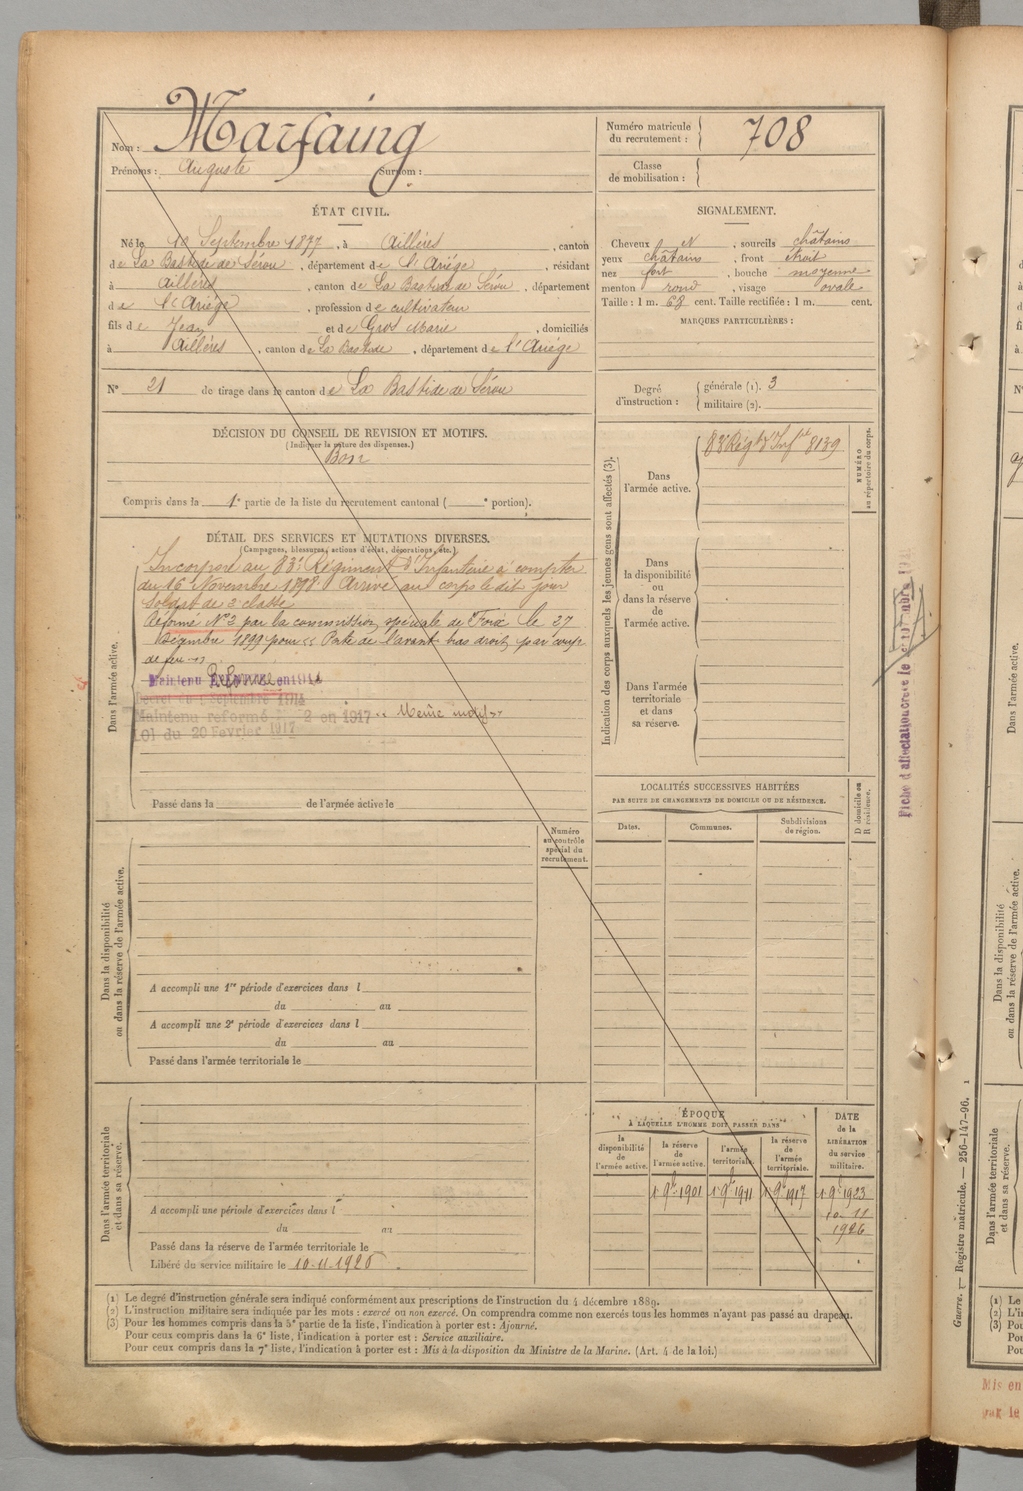 Nom : Marfaing
Prénoms : Auguste Surnom :
Numéro matricule du recrutement : 708
Classe de mobilisation :
ÉTAT CIVIL.
Né le 10 Septembre 1877, à Aillères, canton
de La Bastide de Sérou, département de l'Ariége, résidant
à Aillères, canton de La Bastide de Sérou, département
de l'Ariége, profession de cultivateur
fils de Jean et de Gros Marie, domiciliés
à Aillères, canton de La Bastide, département de l'Ariége
N° 21 de tirage dans le canton de La Bastide de Sérou
SIGNALEMENT.
Cheveux N, sourcils châtains
yeux châtains, front étroit
nez fort, bouche moyenne
menton rond, visage ovale
Taille : 1 m. 68 cent. Taille rectifiée : 1 m. cent.
MARQUES PARTICULIÈRES :
Degré d'instruction : générale (1). 3
militaire (2).
DÉCISION DU CONSEIL DE REVISION ET MOTIFS.
(Indiquer la nature des dispenses.)
Bon
Compris dans la 1e partie de la liste du recrutement cantonal ( e portion).
DÉTAIL DES SERVICES ET MUTATIONS DIVERSES.
(Campagnes, blessures, actions d'éclat, décorations, etc.)
Dans l'armée active.
Incorporé au 83e Régiment d'Infanterie à compter
du 16 Novembre 1898. Arrivé au corps le dit jour
soldat de 2e classe
Réformé N° 2 par la commission spéciale de Foix le 27
Décembre 1899 pour « Perte de l'avant bras droit par coup
de feu »
Maintenu Réformé en 1914
Décret du 9 Septembre 1914
Maintenu réformé N° 2 en 1917 « Même motif »
Loi du 20 Fevrier 1917
Passé dans la de l'armée active le
Indication des corps auxquels les jeunes gens sont affectés (3).
Dans l'armée active.
83e Régt d'Infie 8139
NUMÉRO au répertoire du corps.
Dans la disponibilité ou dans la réserve de l'armée active.
Dans l'armée territoriale et dans sa réserve.
LOCALITÉS SUCCESSIVES HABITÉES
PAR SUITE DE CHANGEMENTS DE DOMICILE OU DE RÉSIDENCE.
Dates. Communes. Subdivisions de région.
D domicile ou R résidence.
Numéro au contrôle spécial du recrutement.
Dans la disponibilité ou dans la réserve de l'armée active.
A accompli une 1re période d'exercices dans l
du au
A accompli une 2e période d'exercices dans l
du au
Passé dans l'armée territoriale le
Dans l'armée territoriale et dans sa réserve.
A accompli une période d'exercices dans l
du au
Passé dans la réserve de l'armée territoriale le
Libéré du service militaire le 10-11-1926
ÉPOQUE
À LAQUELLE L'HOMME DOIT PASSER DANS
la disponibilité de l'armée active.
la réserve de l'armée active.
l'armée territoriale.
la réserve de l'armée territoriale.
DATE de la LIBÉRATION du service militaire.
1 9bre 1901 1 9bre 1911 1 9bre 1917 1 9bre 1923
10-11
1926
(1) Le degré d'instruction générale sera indiqué conformément aux prescriptions de l'instruction du 4 décembre 1889.
(2) L'instruction militaire sera indiquée par les mots : exercé ou non exercé. On comprendra comme non exercés tous les hommes n'ayant pas passé au drapeau.
(3) Pour les hommes compris dans la 5e partie de la liste, l'indication à porter est : Ajourné.
Pour ceux compris dans la 6e liste, l'indication à porter est : Service auxiliaire.
Pour ceux compris dans la 7e liste, l'indication à porter est : Mis à la disposition du Ministre de la Marine. (Art. 4 de la loi.)
Fiche d'affectation créée le
Guerre. — Registre matricule. — 256-147-96.
Mis en
par le